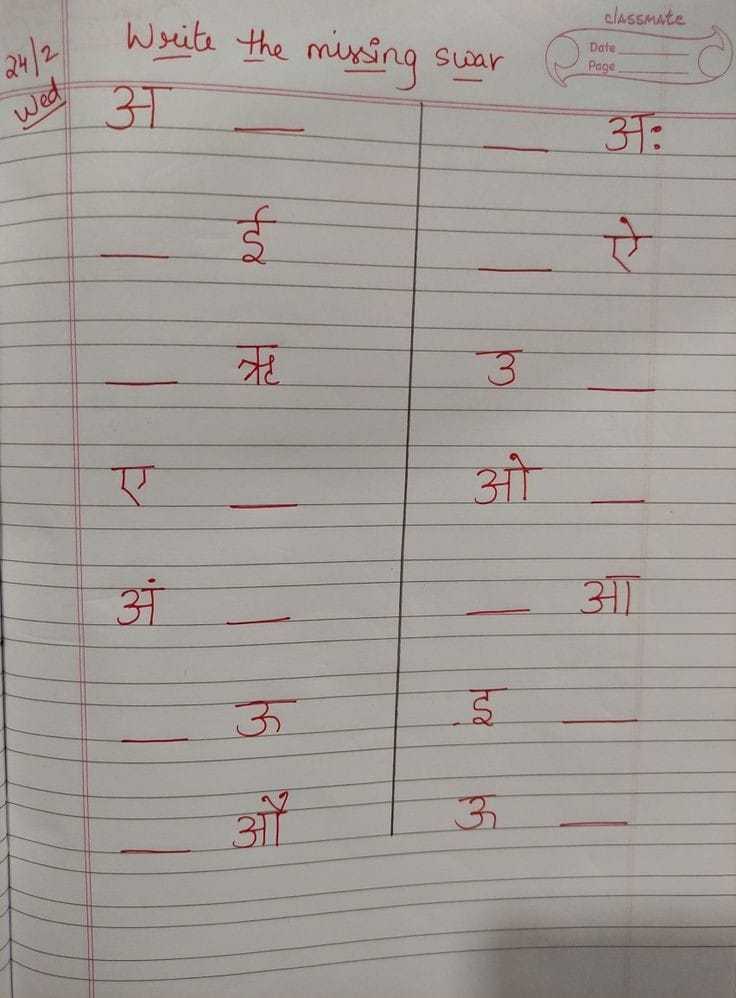 classmate
Date
Page
24/2
Wed
Write the missing swar
अ __
__ ई
__ ऋ
ए __
अं __
__ ऊ
__ औ
__ अः
__ ऐ
उ __
ओ __
__ आ
इ __
ऊ __